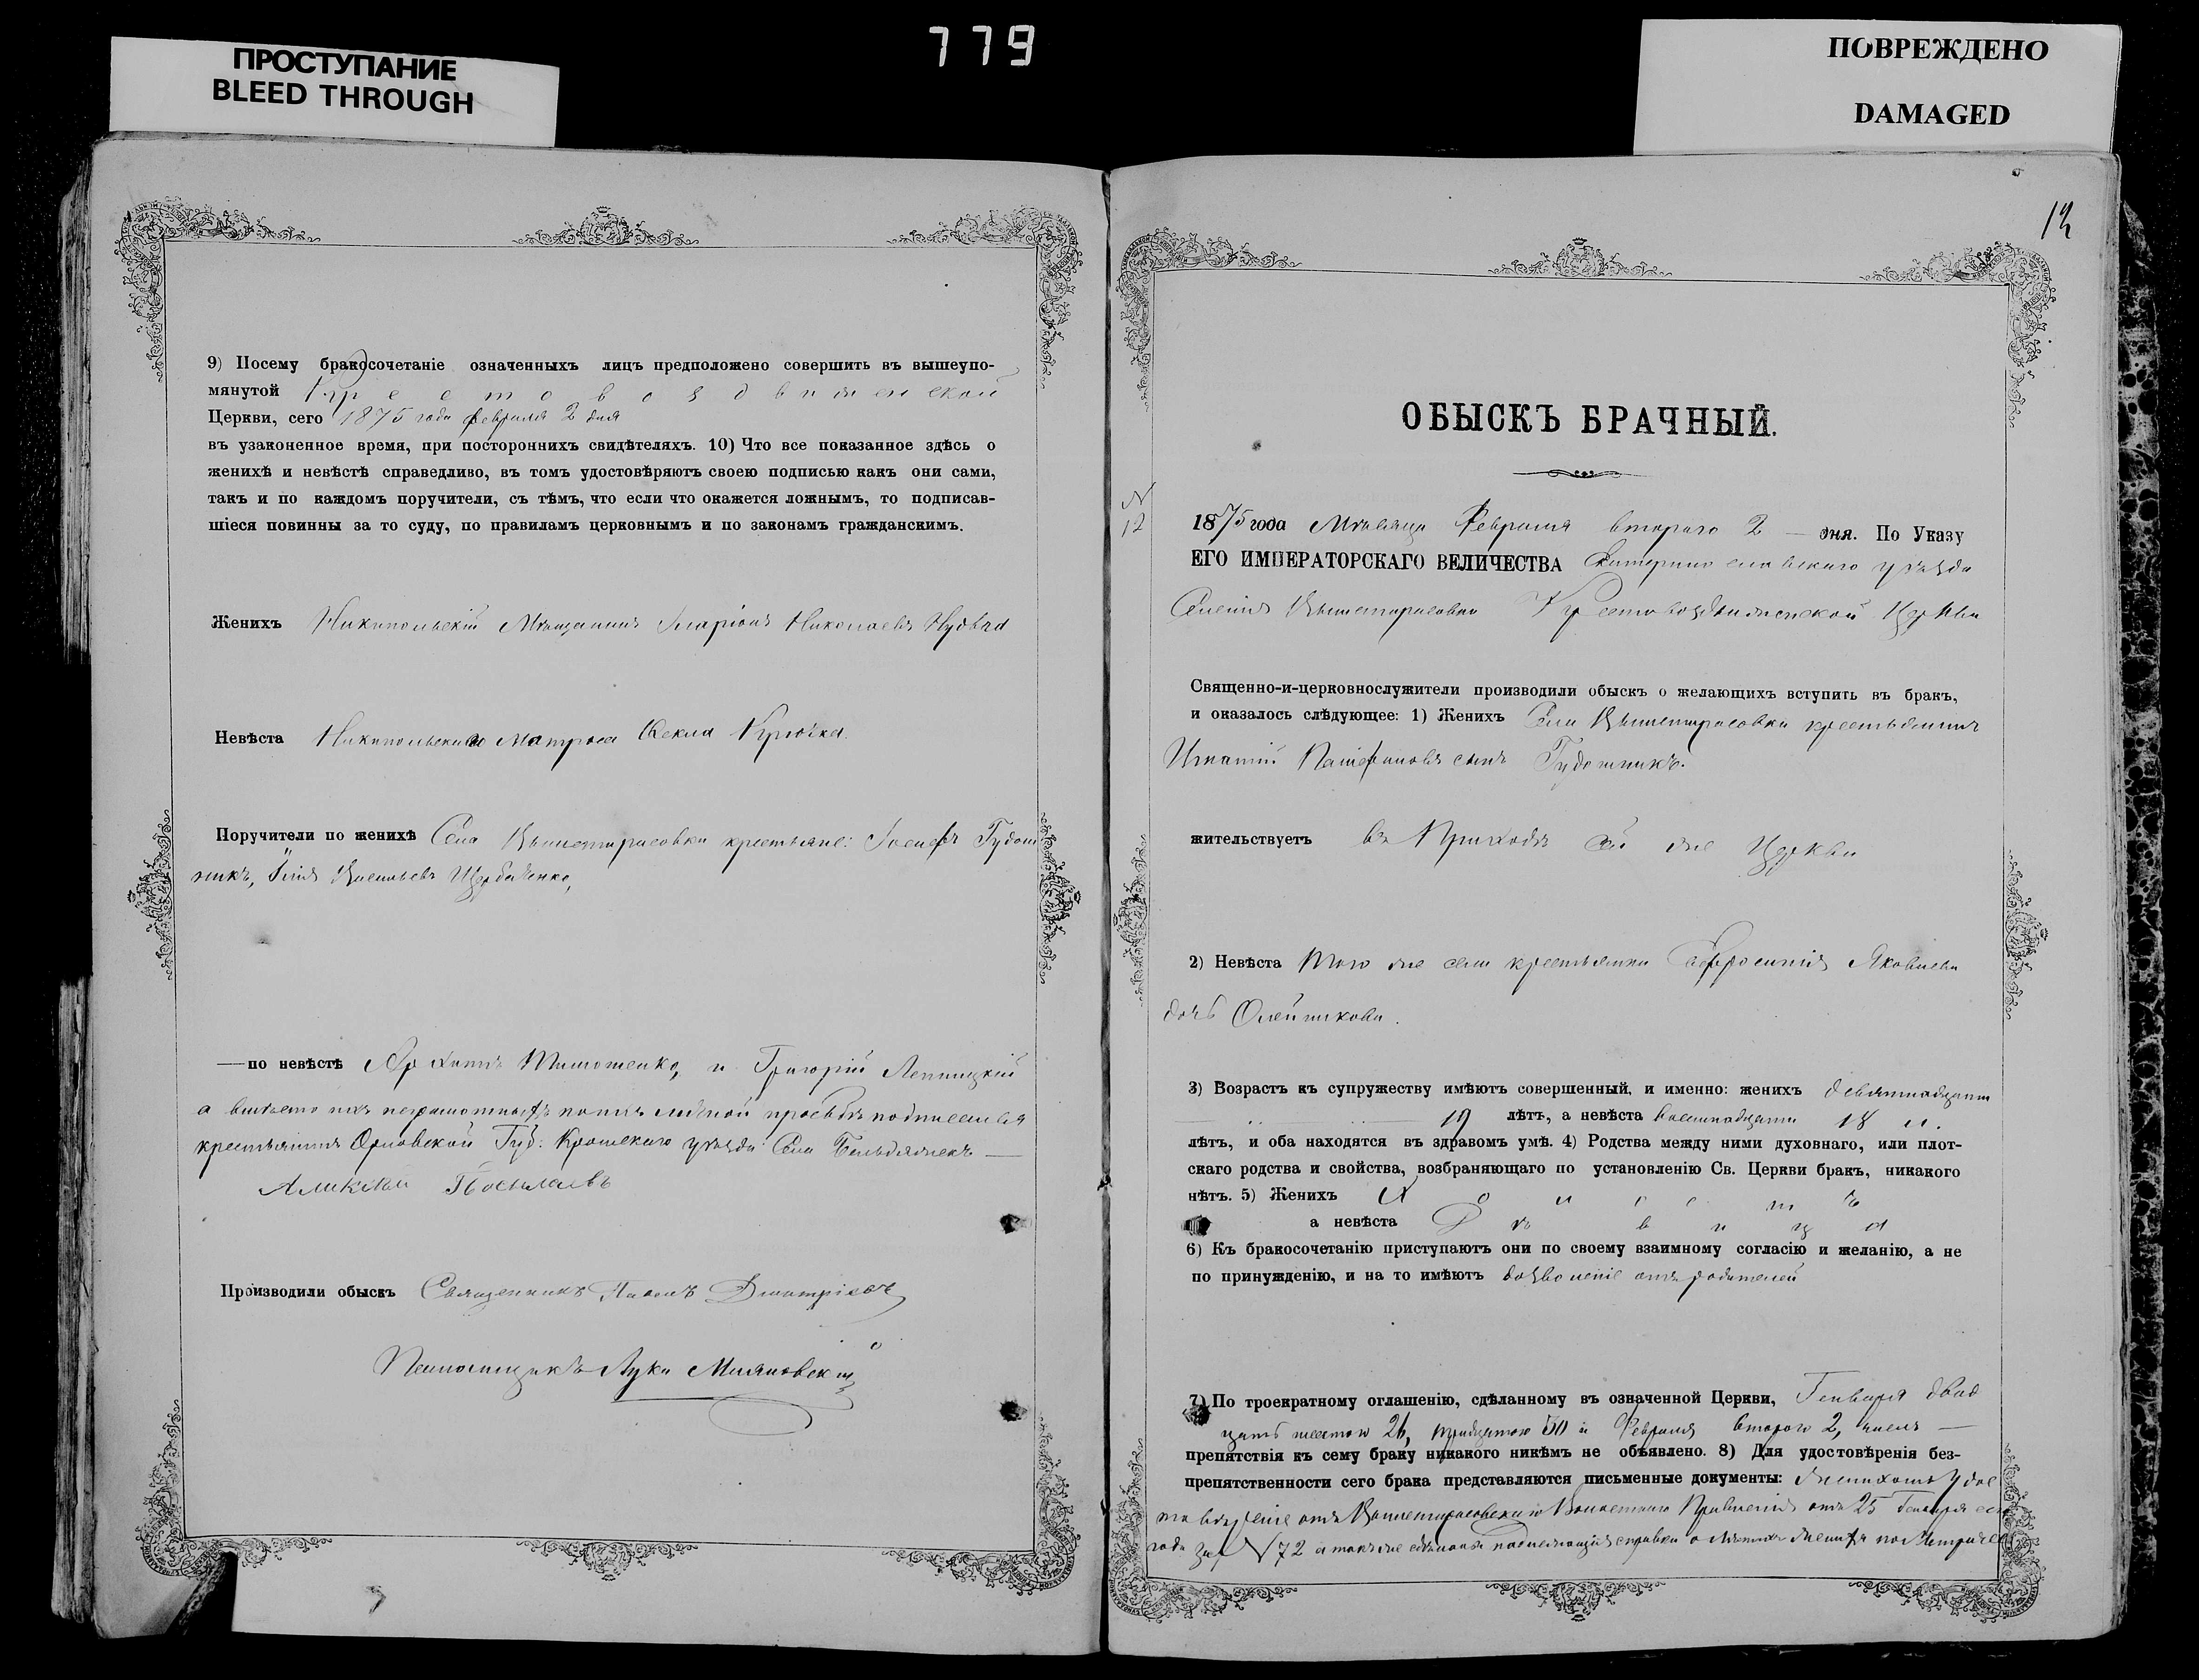 779
ПРОСТУПАНИЕ
BLEED THROUGH
ПОВРЕЖДЕНО
DAMAGED
9) Посему бракосочетаніе означенныхъ лицъ предположено совершить въ вышеупо-
мянутой Крестовоздвиженской
Церкви, сего 1875 года февраля 2 дня
въ узаконенное время, при постороннихъ свидѣтеляхъ. 10) Что все показанное здѣсь о
женихѣ и невѣстѣ справедливо, въ томъ удостовѣряютъ своею подписью какъ они сами,
такъ и по каждомъ поручители, съ тѣмъ, что если что окажется ложнымъ, то подписав-
шіеся повинны за то суду, по правиламъ церковнымъ и по законамъ гражданскимъ.
Женихъ Никипольскій Мѣщанинъ Иларіонъ Николаевъ
Невѣста Никипольскаго Матроса Ѳекла Крючка.
Поручители по женихѣ Села Вышетарасовки крестьяне: Іосифъ Гудош
никъ, Илія Васильевъ Щербаченко,
—по невѣстѣ Тимошенко, и Григорій
а вмѣсто ихъ неграмотныхъ по ихъ личной просьбѣ подписался
крестьянинъ Орловской Губ: Кромскаго уѣзда Села —
Аликсѣй
Производили обыскъ Священникъ Павелъ Дмитріевъ
Псаломщикъ Лука
12
ОБЫСКЪ БРАЧНЫЙ.
N
12
1875 года Мѣсяца Февраля втораго 2 — дня. По Указу
ЕГО ИМПЕРАТОРСКАГО ВЕЛИЧЕСТВА Екатеринославскаго уѣзда
Селенія Вышетарасовки Крестовоздвиженской Церкви
Священно-и-церковнослужители производили обыскъ о желающихъ вступить въ бракъ,
и оказалось слѣдующее: 1) Женихъ Села Вышетарасовки крестьянинъ
Игнатій сынъ Гудошникъ.
жительствуетъ въ Приходѣ сей же Церкви
2) Невѣста Того же села крестьянка Евфросинія Яковлева
дочь Олейникова.
3) Возрастъ къ супружеству имѣютъ совершенный, и именно: женихъ девятнадцати
19 лѣтъ, а невѣста восемнадцати 18 л.
лѣтъ, и оба находятся въ здравомъ умѣ. 4) Родства между ними духовнаго, или плот-
скаго родства и свойства, возбраняющаго по установленію Св. Церкви бракъ, никакого
нѣтъ. 5) Женихъ Холостъ
а невѣста Дѣвица
6) Къ бракосочетанію приступаютъ они по своему взаимному согласію и желанію, а не
по принужденію, и на то имѣютъ дозволеніе отъ родителей
7) По троекратному оглашенію, сдѣланному въ означенной Церкви, Генваря двад
цать шестого 26, тридцатого 30 и Февраля второго 2, числъ —
препятствія къ сему браку никакого никѣмъ не объявлено. 8) Для удостовѣренія без-
препятственности сего брака представляются письменные документы: Женихомъ Удос
товѣреніе отъ Вышетарасовскаго Волостнаго Правленія отъ 25 Генваря сего
года за N 72 и также справки о лѣтахъ по Метриче